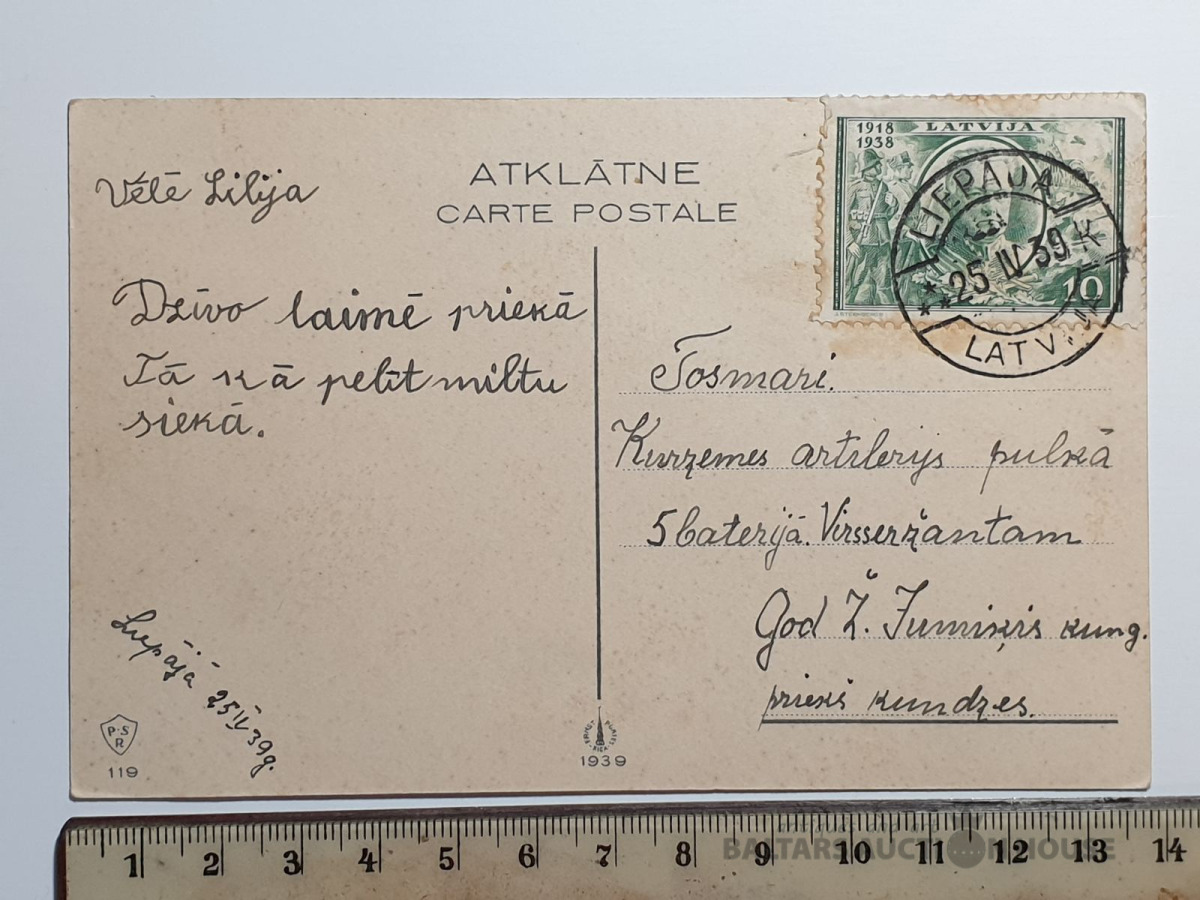 Vēlē Lilija
ATKLĀTNE
CARTE POSTALE
1918 LATVIJA
1938
10
LIEPĀJA
25 IV 39 K
LATVIJA
Dzīvo laimē priekā
Tā kā pelīt miltu
siekā.
Liepājā 25 IV 39g.
Tosmari.
Kurzemes artilerijs pulkā
5 baterijā. Virsseržantam
God Ž. Jumiķis kung.
prieks kundzes.
P.S
R
119
RIGA
1939
1 2 3 4 5 6 7 8 9 10 11 12 13 14
BALTARS AUCTION HOUSE